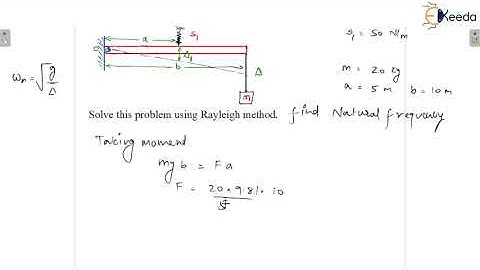 Ekeeda
a
S₁
Δ₁
b
Δ
m
ωₙ = √g/Δ
S₁ = 50 N/m
m = 20 kg
a = 5 m b = 10 m
Solve this problem using Rayleigh method. find Natural frequency
Taking moment
mg b = F a
F = 20 * 9.81 * 10
5